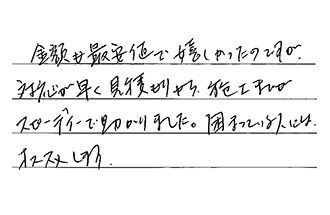 金額も最安値で嬉しかったのですが、
対応が早く見積りから、施工までが
スピーディーで助かりました。困っている人には、
オススメします。